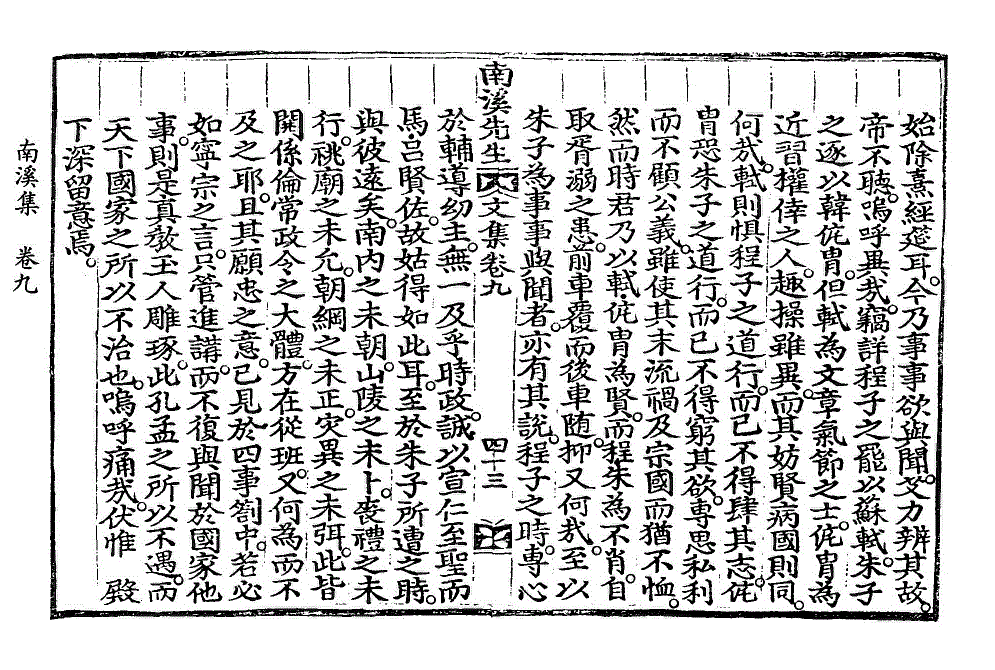 始除熹經筵耳。今乃事事欲與聞。力辨其故。
帝不聽。嗚呼異哉。竊詳程子之罷以蘇軾。朱子
之逐以韓侂胄。但軾為文章氣節之士。侂胄為
近習權倖之人。趣操雖異。而其妨賢病國則同。
何哉。軾則惧程子之道行。而已不得肆其志。侂
胄恐朱子之道行。而已不得窮其欲。專思私利
而不顧公義。雖使其末流禍及宗國而猶不恤。
然而時君乃以軾,侂胄為賢。而程朱為不肖。自
取胥溺之患。前車覆而後車随。抑又何哉。至以
朱子為事事與聞者。亦有其說。程子之時。專心
南溪先生文集卷九 四十三
於輔導幼主。無一及乎時政。誠以宣仁至聖而
馬,呂賢佐。故姑得如此耳。至於朱子所遭之時。
與彼遠矣。南內之未朝。山陵之未卜。喪禮之未
行。祧廟之未允。朝綱之未正。灾異之未弭。此皆
関係倫常政令之大體。方在從班。又何為而不
及之耶。且其願忠之意。已見於四事劄中。若必
如寧宗之言。只管進講。而不復與聞於國家他
事。則是真教玉人雕琢。此孔孟之所以不遇。而
天下國家之所以不治也。嗚呼痛哉。伏惟 殿
下深留意焉。
南溪集 卷九